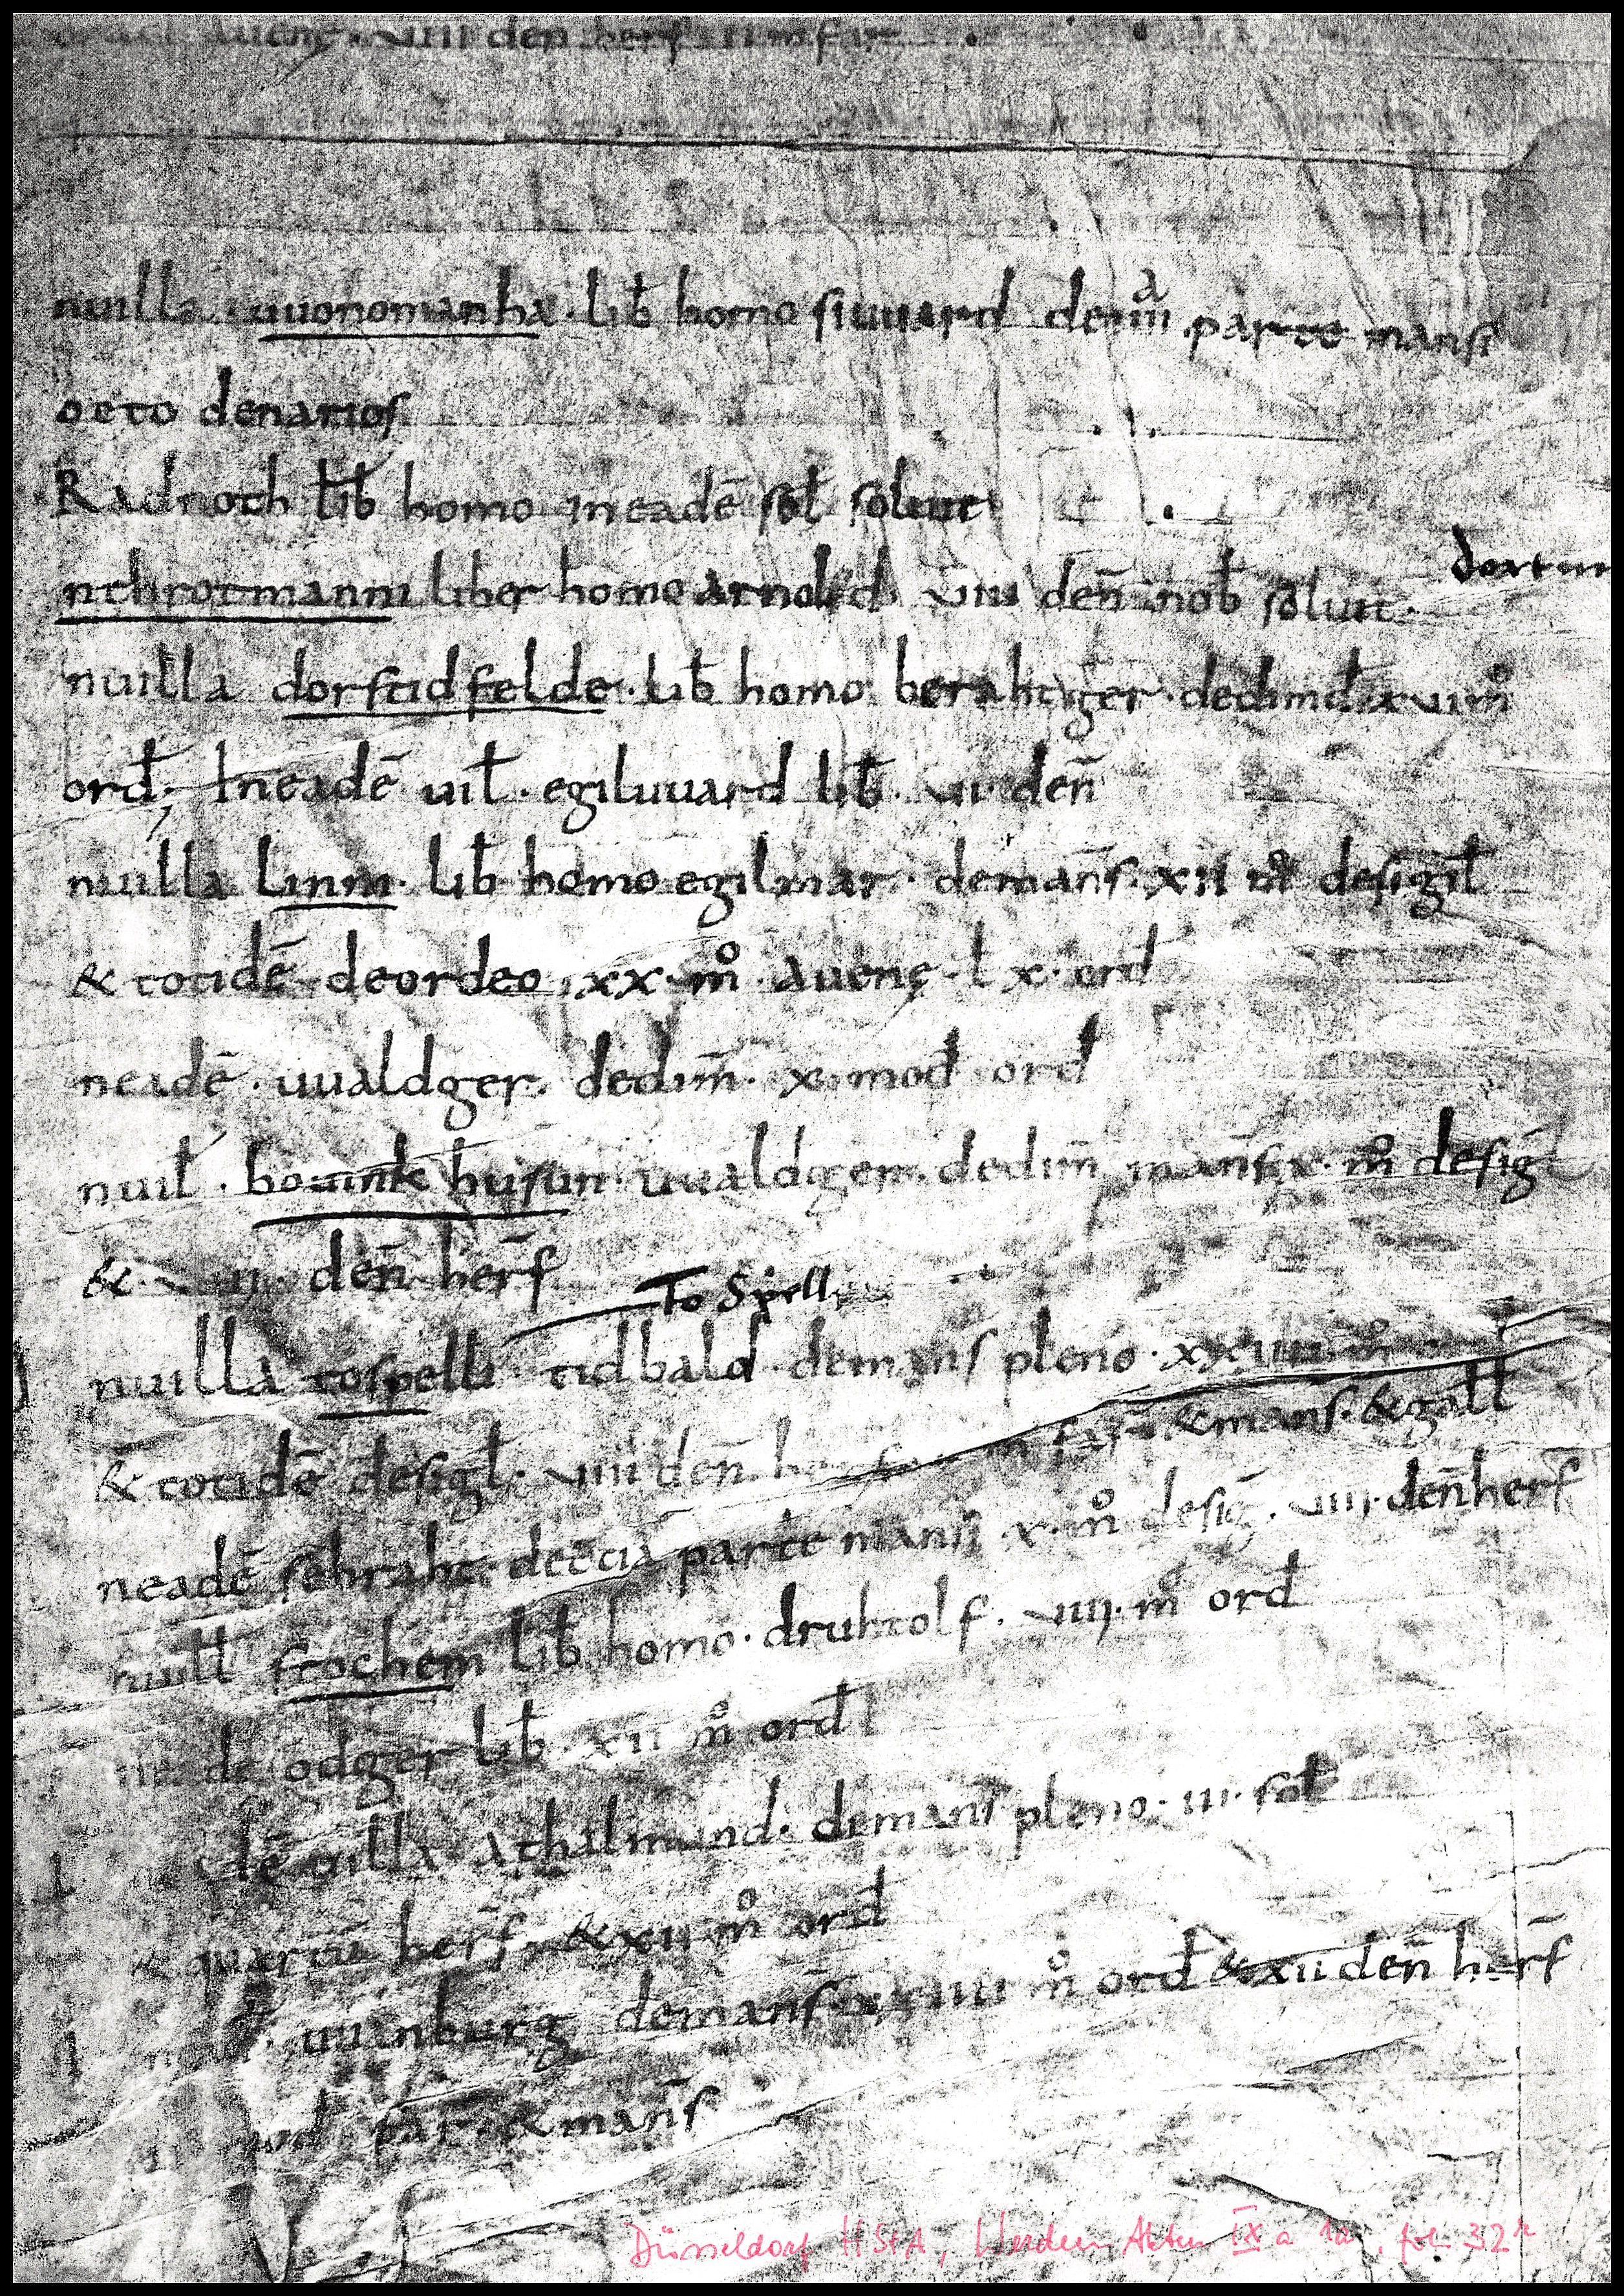 auenę · uiii den herf
nuilla · uuonomanha · lib̄ homo siuuard dem̄ia parte mansi
octo denarios
Radnoth lib̄ homo ineadē sol̄ soluit
nthrotmanni liber homo arnold uiii den̄ nob̄ soluit ·
dortm
nuilla dorstidfelde · lib̄ homo berahtger · dedimd̄ · x uim̊
ord̄; Ineadē uil̄ · egiluuard lib̄ · ui · den̄
nuilla Linni · Lib̄ homo egilmar · deman̄s · xii m̊ desigil̄
& totidē deordeo xx · m̊ · auenę · l x · ord̄
neadē · uualdger · dedim̄ · x · mod̄ ord̄
nuil̄ · bouink husun · uualdger · dedim̄ man̄s · x · m̊ desigl̄
& den̄ her̄f
To Spelli
nuilla tospelli tidbald · demans pleno · xxiiii m̊
& totidē desigl̄ · uiii den̄ & mans · & gall̄
neadē sebraht · detcia parte mansi · x · m̊ desiḡ · uiii · den̄ herf
nuill frochem lib̄ homo · druhtolf · uiii · m̊ ord̄
de odger lib̄ · xii m̊ ord̄
dē uilla athalmund · demans pleno · iii · sol̄
& quartū her̄f & xii m̊ ord̄
uuinburg deman̄s m̊ ord̄ & xii den̄ her̄f
par · & man̄s
Düsseldorf HStA, Werden Akten IX a 1a, fol. 32r